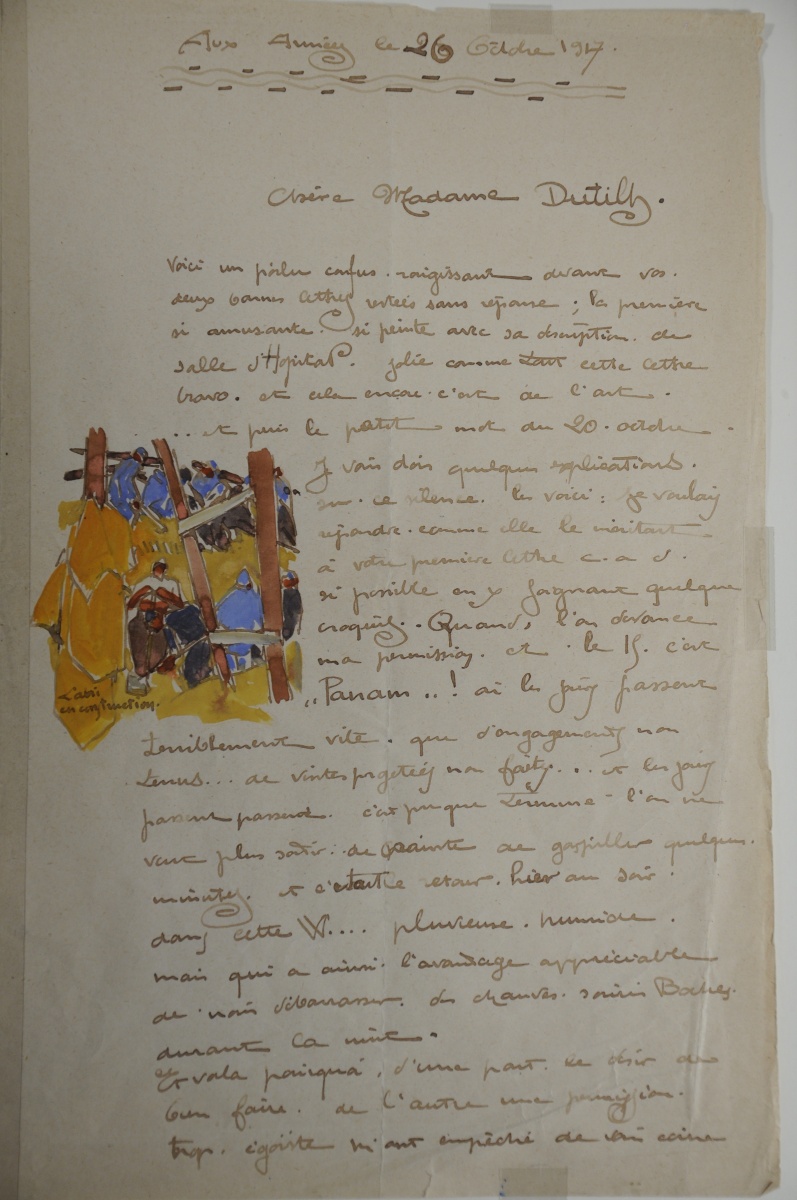 Aux Armées le 26 Octobre 1917.
Chère Madame Dutilh.
Voici un poilu confus. rougissant devant vos.
deux bonnes lettres restées sans réponse ; la première
si amusante. si peinte avec sa description. de
salle d'Hopital. jolie comme tout cette lettre
bravo. et cela encore. c'est de l'art.
... et puis le petit mot du 20. octobre.
Je vous dois quelques explications.
sur. ce silence. les voici : je voulais
répondre. comme elle le méritait
à votre première lettre c. a d.
si possible en y joignant quelque
croquis. Quand, l'on devance
ma permission. et. le 15. c'est
"Panam..! où les jours passent
terriblement vite. que d'engagements non
tenus... de visites projetées non faites... et les jours
passent passent. c'est presque terminé - l'on ne
veut plus sortir. de crainte de gaspiller quelques.
minutes. et c'est le retour. hier au soir.
dans cette W.... pluvieuse. humide.
mais qui a ainsi. l'avantage appréciable
de nous débarrasser. des chauves. souris Boches.
durant la nuit.
Et voila pourquoi, d'une part. le désir de
bien faire. de l'autre une permission.
trop. égoiste m'ont empêché de
L'abri
en construction.